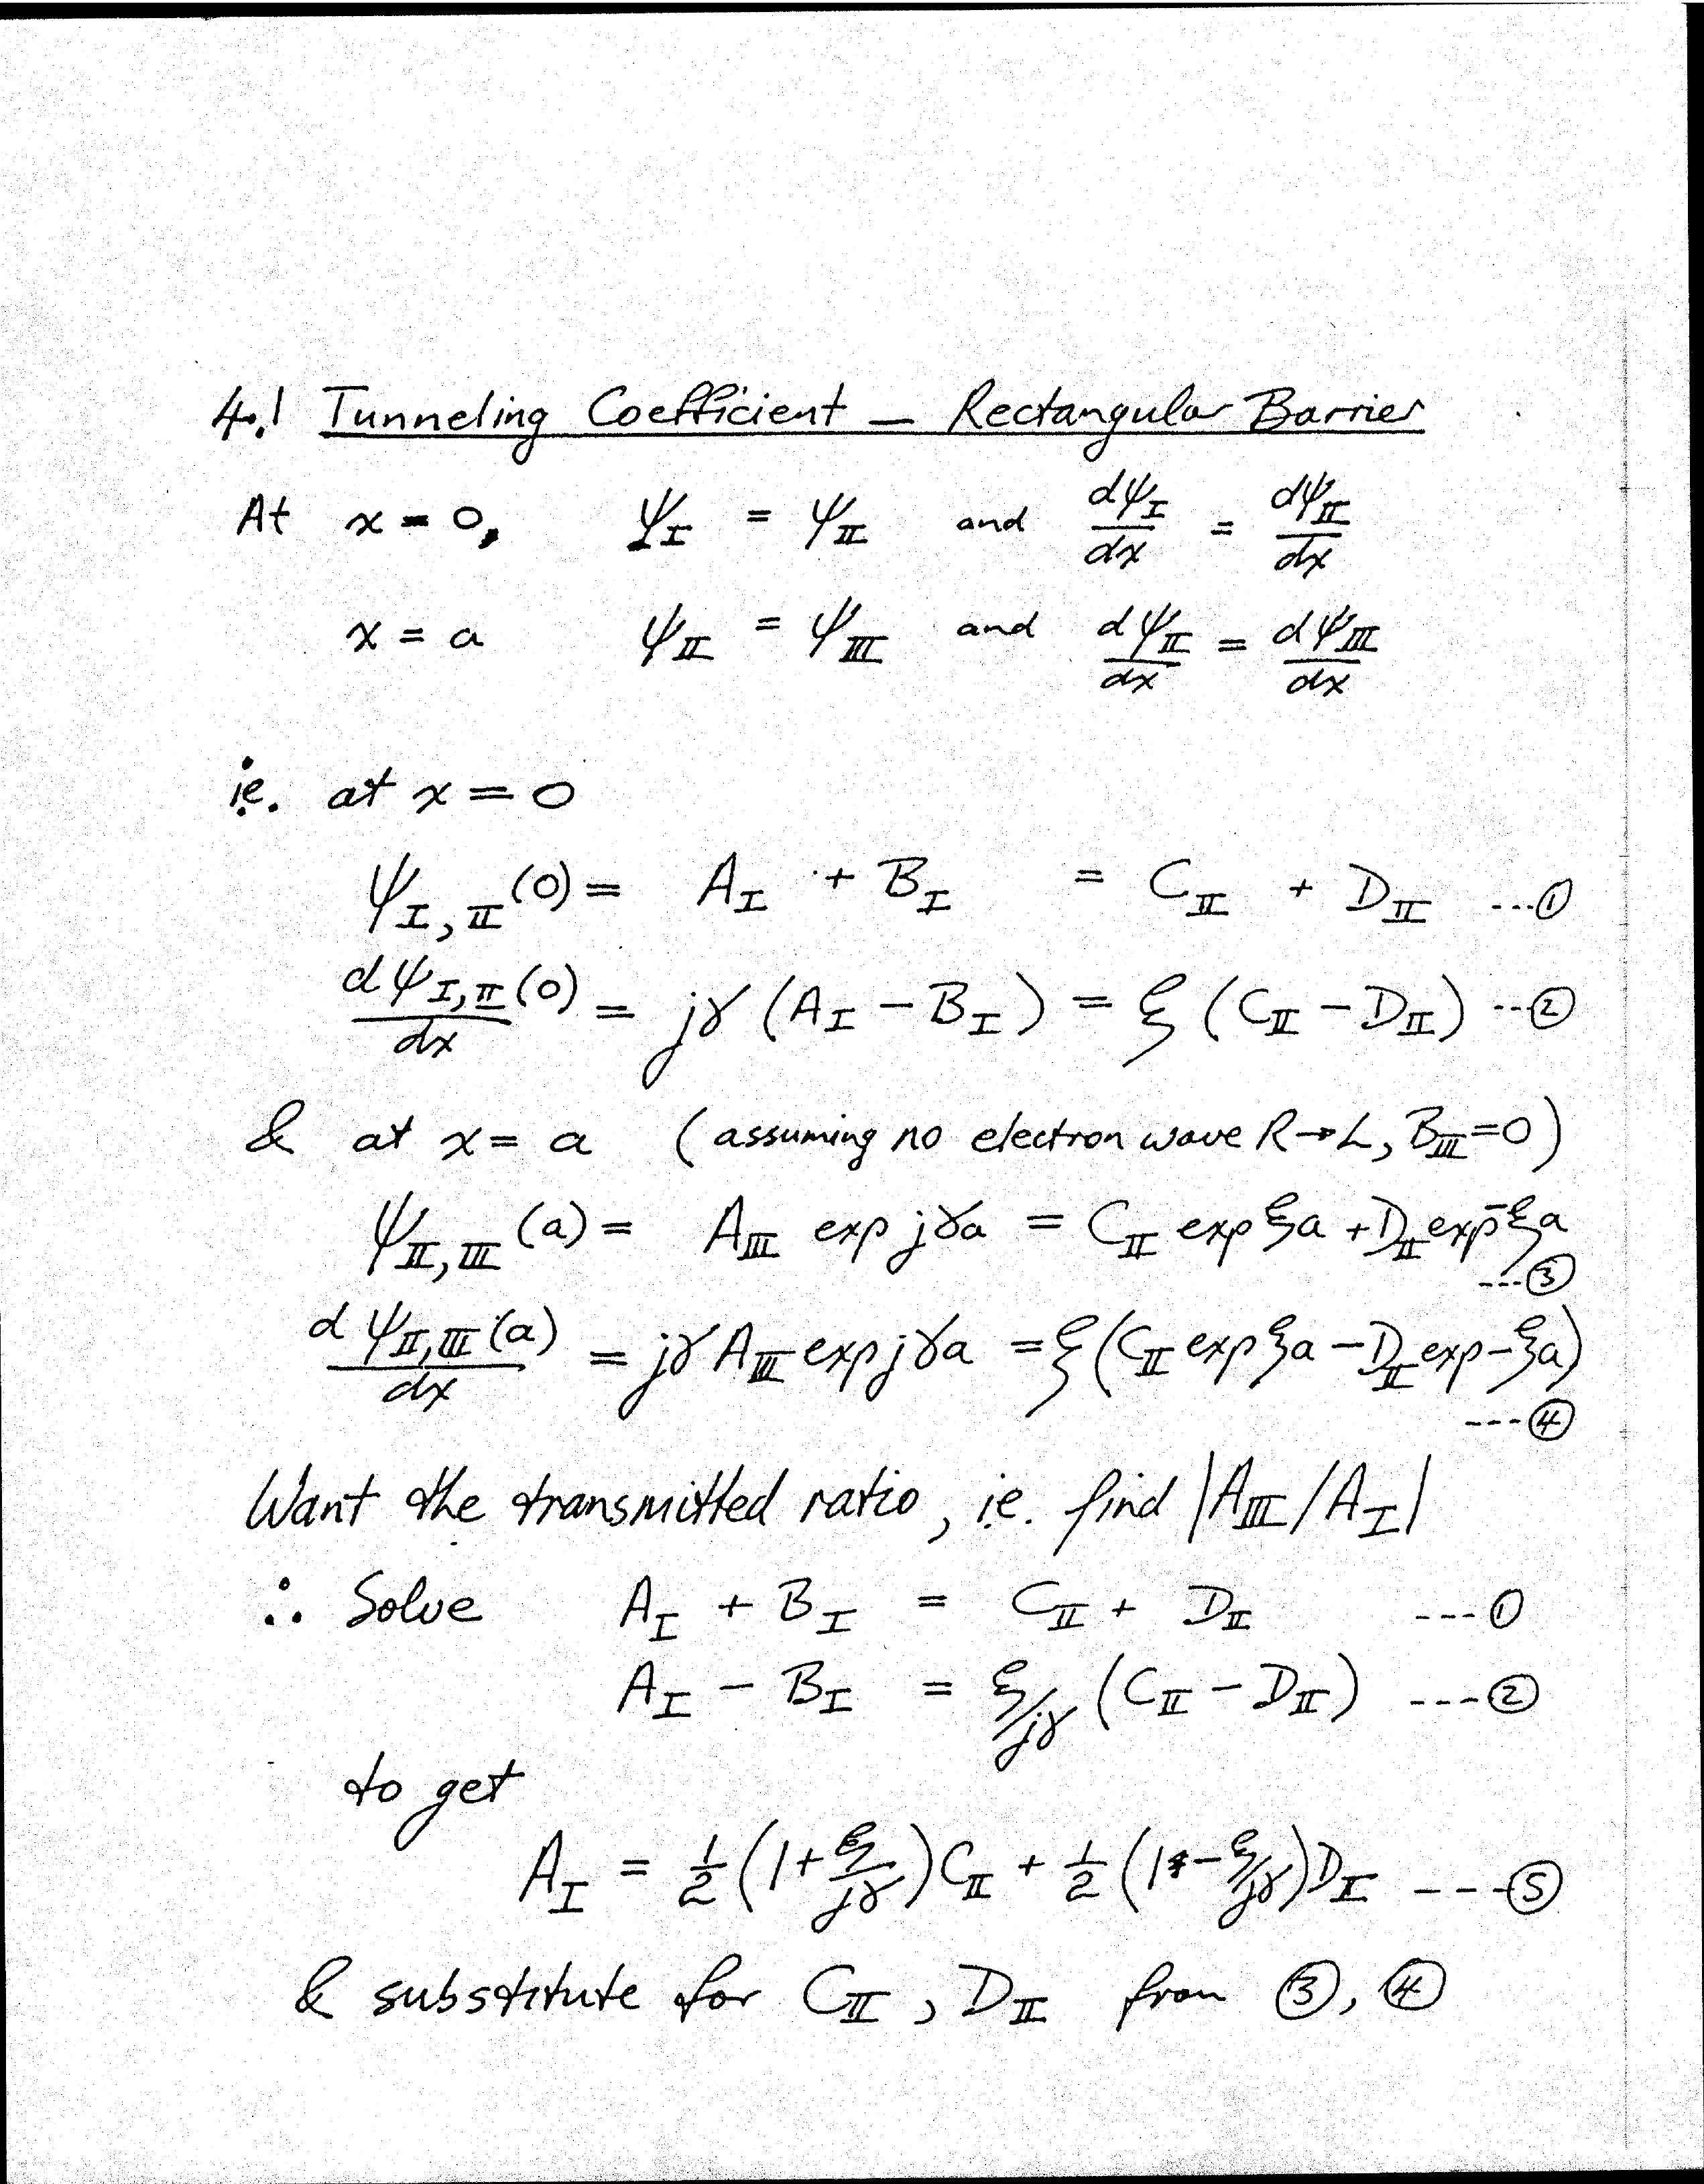 4.1 Tunneling Coefficient — Rectangular Barrier
At x = 0, ψ_I = ψ_II and dψ_I/dx = dψ_II/dx
x = a ψ_II = ψ_III and dψ_II/dx = dψ_III/dx
ie. at x = 0
ψ_I,II (0) = A_I + B_I = C_II + D_II ---①
dψ_I,II (0)/dx = jγ (A_I − B_I) = ξ (C_II − D_II) ---②
& at x = a (assuming no electron wave R→L, B_III = 0)
ψ_II,III (a) = A_III exp jγa = C_II exp ξa + D_II exp −ξa
---③
dψ_II,III (a)/dx = jγ A_III exp jγa = ξ (C_II exp ξa − D_II exp −ξa)
---④
Want the transmitted ratio, i.e. find |A_III / A_I|
∴ Solve A_I + B_I = C_II + D_II ---①
A_I − B_I = ξ/jγ (C_II − D_II) ---②
to get
A_I = 1/2 (1 + ξ/jγ) C_II + 1/2 (1 − ξ/jγ) D_II ---⑤
& substitute for C_II, D_II from ③, ④